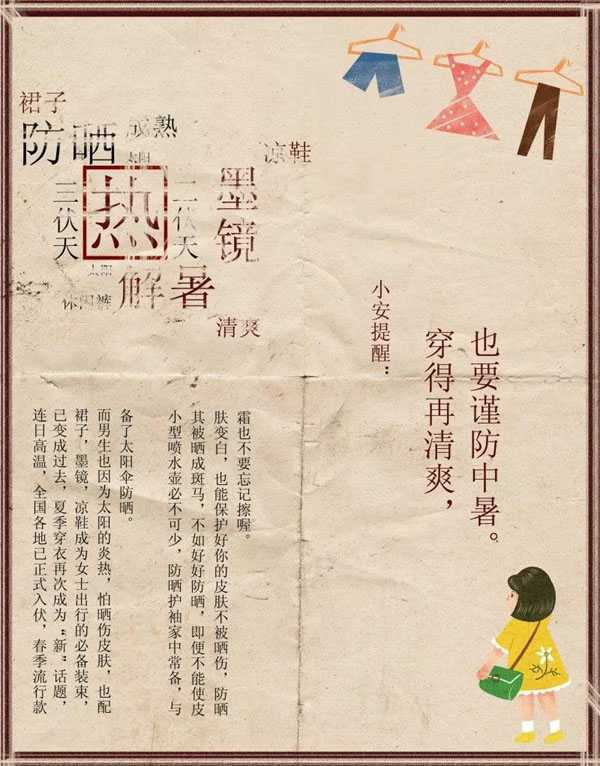 裙子
成熟
防晒
太阳
凉鞋
三伏天
热
二伏天
墨镜
太阳
解暑
休闲裤
清爽
小安提醒：
穿得再清爽，
也要谨防中暑。
连日高温，全国各地已正式入伏，春季流行款
已变成过去，夏季穿衣再次成为“新”话题，
裙子，墨镜，凉鞋成为女士出行的必备装束，
而男生也因为太阳的炎热，怕晒伤皮肤，也配
备了太阳伞防晒。
小型喷水壶必不可少，防晒护袖家中常备，与
其被晒成斑马，不如好好防晒，即便不能使皮
肤变白，也能保护好你的皮肤不被晒伤，防晒
霜也不要忘记擦喔。